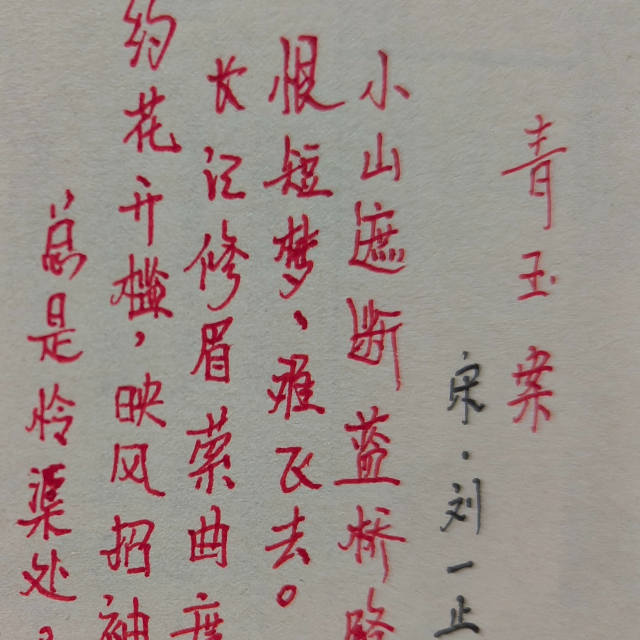 青玉案
宋·刘一止
小山遮断蓝桥路
恨短梦、难飞去。
长记修眉萦曲度
约花开槛，映风招袖
总是怜渠处